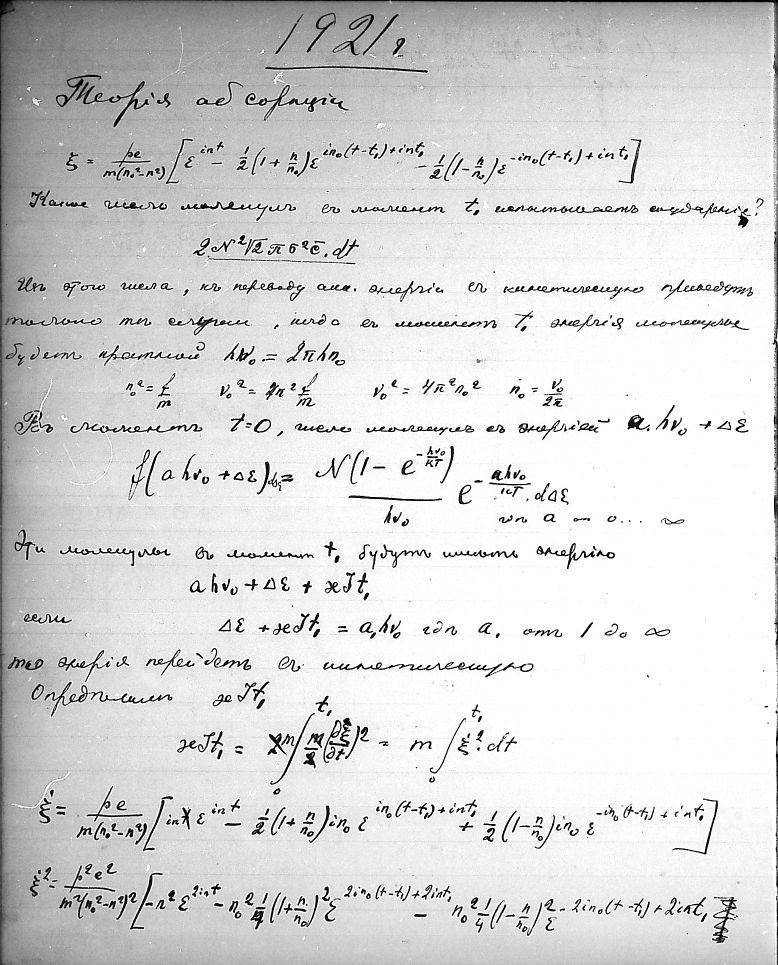 1921 г.
Теорія абсорпціи
ξ = pe/m(n₀²−n²) [ε^{int} − 1/2(1 + n/n₀)ε^{in₀(t−t₁)+int₁} − 1/2(1 − n/n₀)ε^{−in₀(t−t₁)+int₁}]
Какое число молекулъ въ моментъ t₁ испытываетъ соударение?
2N²√2πσ²c̄.dt
Изъ этого числа, къ переводу энергіи въ кинетическую приведутъ
только те случаи, когда въ моментъ t₁ энергія молекулы
будетъ кратной hν₀ = 2πhn₀
n₀² = f/m ν₀² = 4π² f/m ν₀² = 4π²n₀² n₀ = ν₀/2π
Въ моментъ t=0, число молекулъ съ энергіей a.hν₀ + Δε
f(ahν₀ + Δε)dΔε = N(1 − e^{−hν₀/kT})/hν₀ e^{−ahν₀/kT}.dΔε
a = 0 ... ∞
Эти молекулы въ моментъ t₁ будутъ иметь энергію
ahν₀ + Δε + ϰJt₁
если Δε + ϰJt₁ = a₁hν₀ гдѣ a₁ отъ 1 до ∞
то энергія перейдетъ въ кинетическую
Определимъ ϰJt₁
ϰJt₁ = m∫₀^{t₁} (∂ξ/∂t)² = m ∫₀^{t₁} ξ̇².dt
ξ̇ = pe/m(n₀²−n²) [in ε^{int} − 1/2(1 + n/n₀)in₀ ε^{in₀(t−t₁)+int₁} + 1/2(1 − n/n₀)in₀ ε^{−in₀(t−t₁)+int₁}]
ξ̇² = p²e²/m²(n₀²−n²)² [−n²ε^{2int} − n₀² 1/4(1 + n/n₀)²ε^{2in₀(t−t₁)+2int₁} − n₀² 1/4(1 − n/n₀)²ε^{−2in₀(t−t₁)+2int₁}